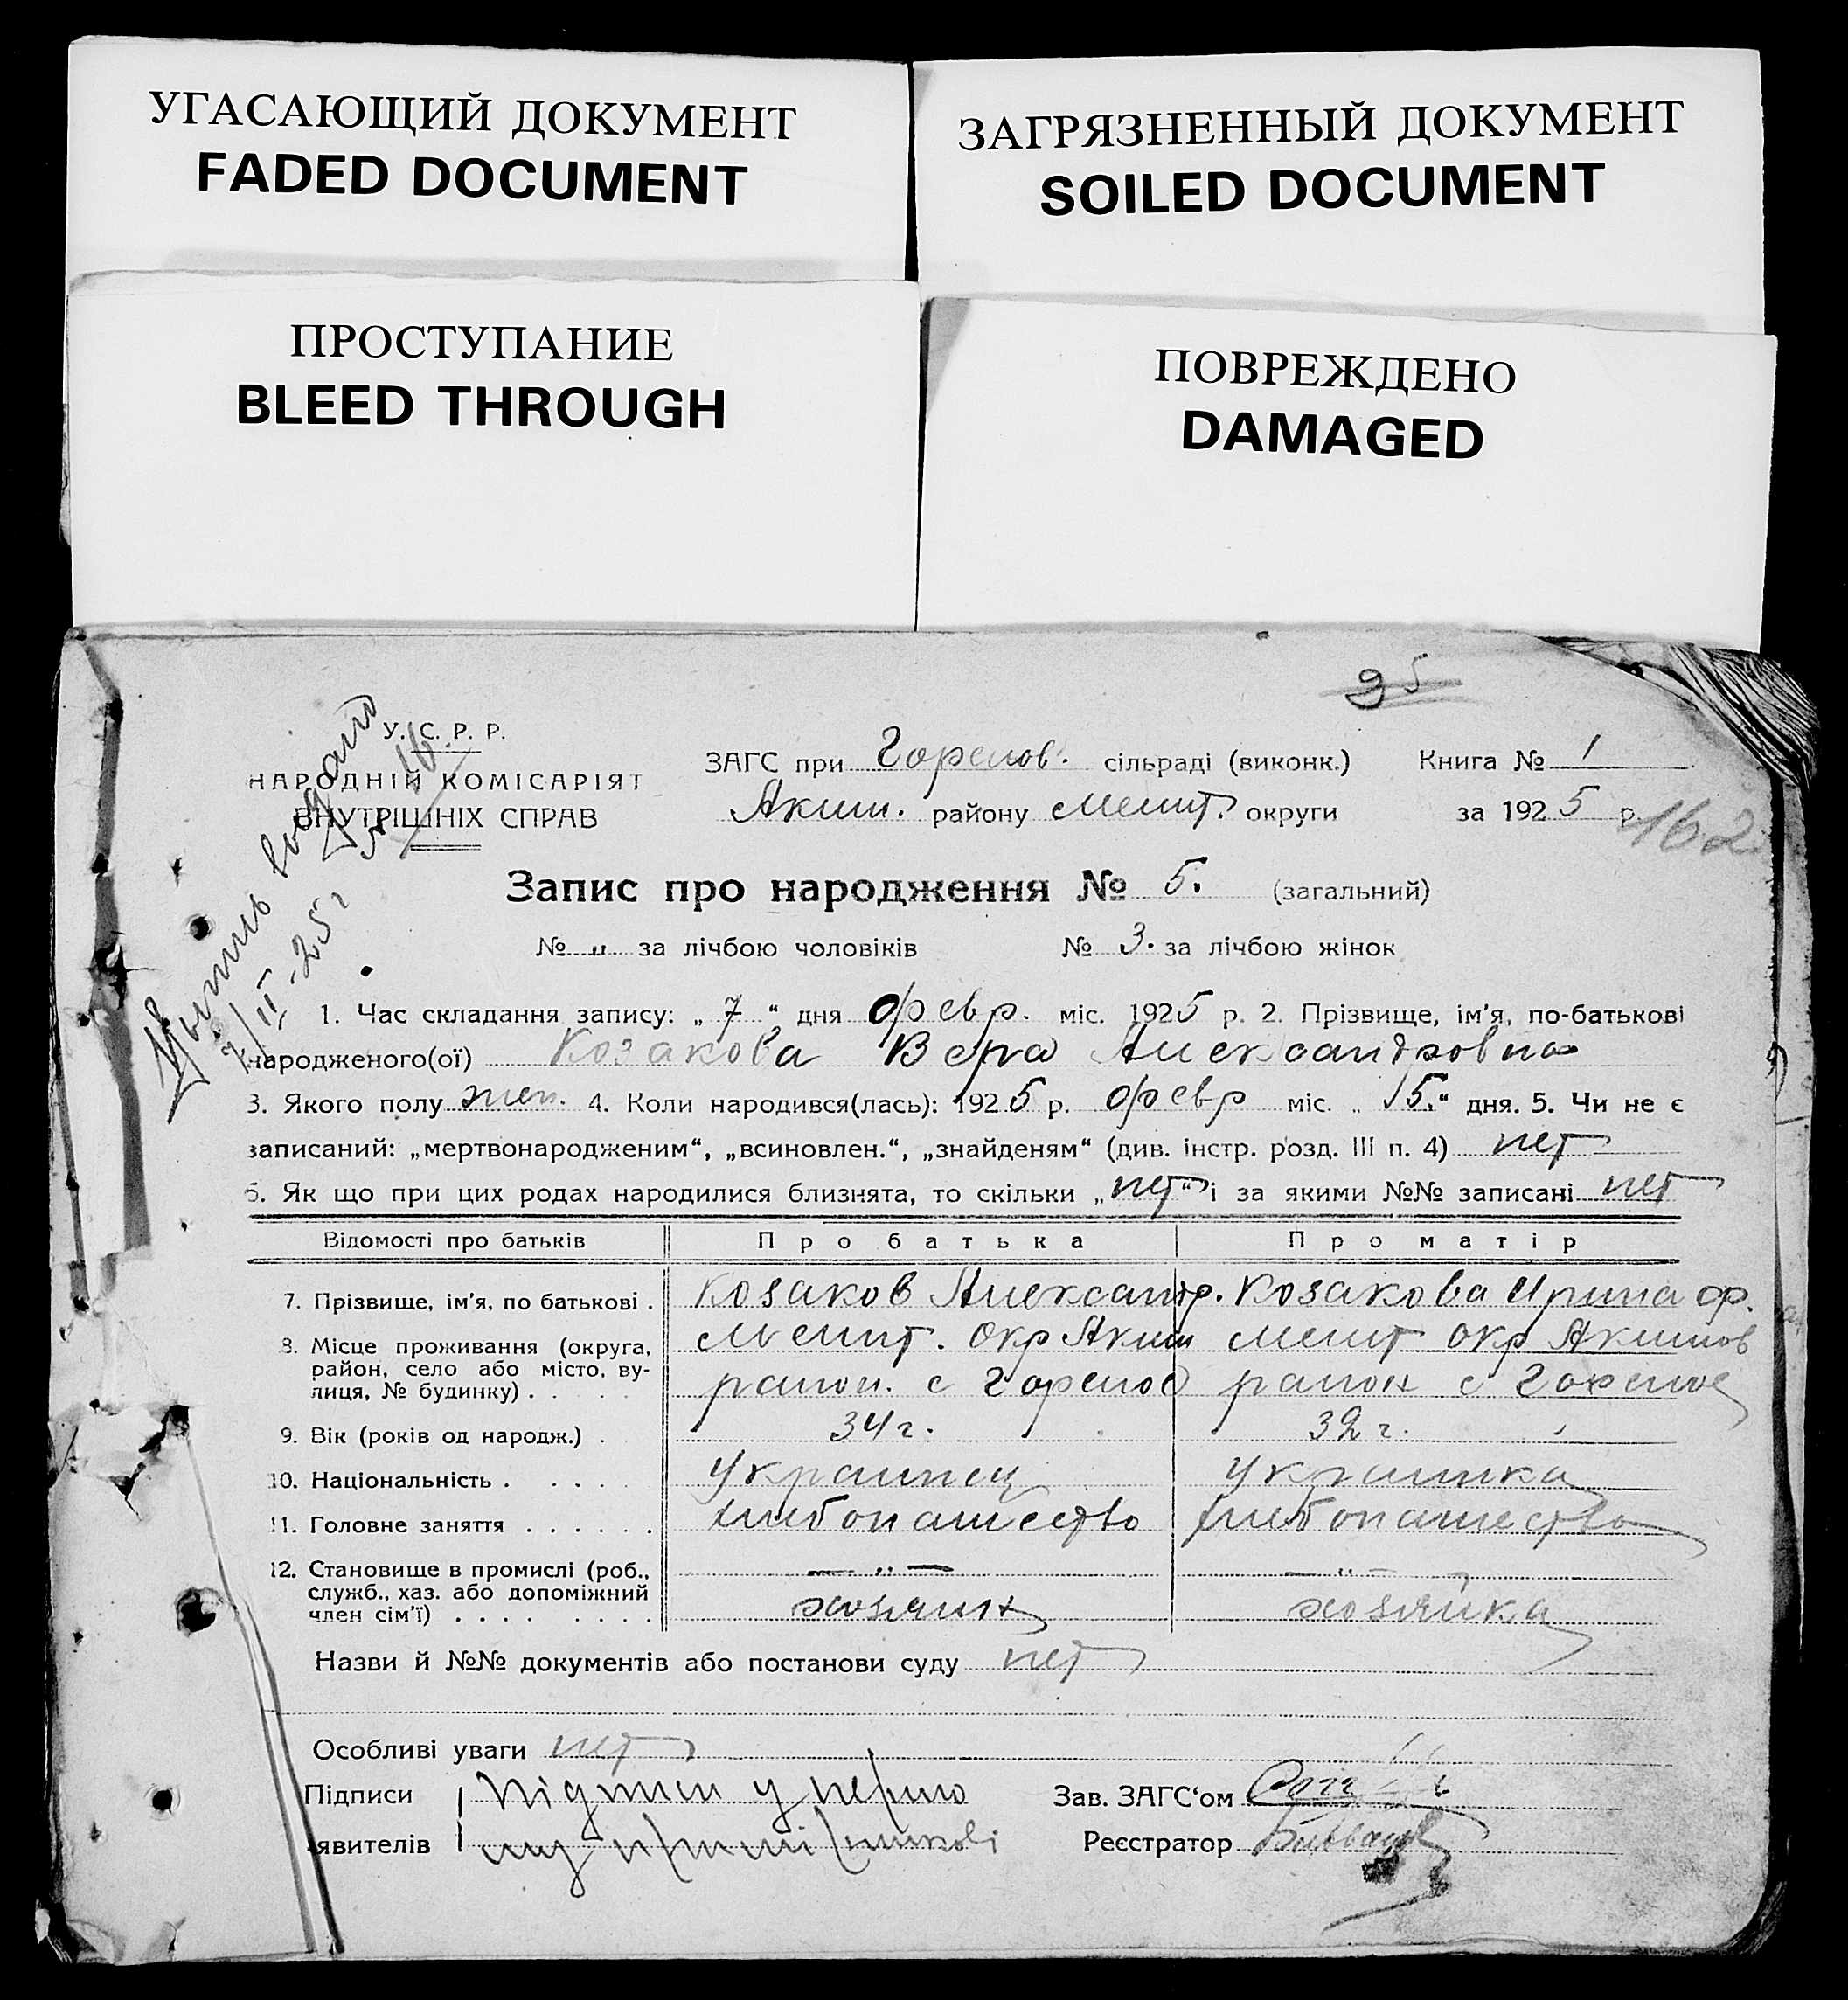 УГАСАЮЩИЙ ДОКУМЕНТ
FADED DOCUMENT
ЗАГРЯЗНЕННЫЙ ДОКУМЕНТ
SOILED DOCUMENT
ПРОСТУПАНИЕ
BLEED THROUGH
ПОВРЕЖДЕНО
DAMAGED
95
У. С. Р. Р.
НАРОДНІЙ КОМІСАРІЯТ
ВНУТРІШНІХ СПРАВ
7/II-25 г
ЗАГС при Горелов. сільраді (виконк.) Книга № 1
Аким. району Мелит. округи за 1925 р.
162
Запис про народження № 5. (загальний)
№ „ за лічбою чоловіків № 3. за лічбою жінок
1. Час складання запису: „7“ дня февр. міс. 1925 р. 2. Прізвище, ім'я, по-батькові
народженого(ої) Козакова Вера Александровна
3. Якого полу жен. 4. Коли народився(лась): 1925 р. февр міс. „5.“ дня. 5. Чи не є
записаний: „мертвонародженим“, „всиновлен.“, „знайденям“ (див. інстр. розд. III п. 4) нет
6. Як що при цих родах народилися близнята, то скільки „нет“ і за якими №№ записані нет
Відомості про батьків Про батька Про матір
7. Прізвище, ім'я, по батькові . Козаков Александр. Козакова Ирина ф.
8. Місце проживання (округа, район, село або місто, вулиця, № будинку) . Мелит. окр Аким Мелит окр Акимов
район. с Горелое район с Горелое
9. Вік (років од народж.) . 34 г. 32 г.
10. Національність . украинец украинка
11. Головне заняття . . . . . . хлебопашество хлебопашество
12. Становище в промислі (роб., — „ — — „ —
служб., хаз. або допоміжний
член сім'ї) . . . . хозяин хозяйка
Назви й №№ документів або постанови суду нет
Особливі уваги нет
Підписи Підписи у
явителів
Зав. ЗАГС'ом
Реєстратор